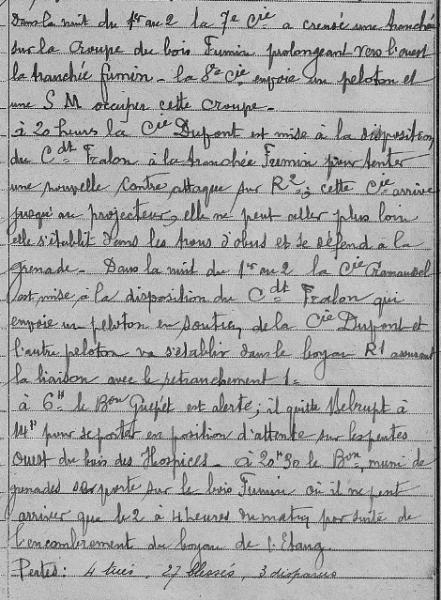 Dans la nuit du 1er au 2 la 7e Cie a creusé une tranchée
sur la croupe du bois Fumin prolongeant vers l'ouest
la tranchée fumin - la 8e Cie envoie un peloton et
une S M occuper cette croupe -
à 20 heures la Cie Dupont est mise à la disposition
du Cdt Fralon à la tranchée Fumin pour tenter
une nouvelle contre, attaque sur R2; cette Cie arrive
jusqu'au projecteur, elle ne peut aller plus loin
elle s'établit dans les trous d'obus et se défend à la
grenade - Dans la nuit du 1er au 2 la Cie
est mise, à la disposition du Cdt Fralon qui
envoie un peloton en soutien, de la Cie Dupont et
l'autre peloton va s'établir dans le boyau R1 assurant
la liaison avec le retranchement 1 -
à 6H le Bon Guépet est alerté; il quitte Belrupt à
14H pour se porter en position d'attente sur les pentes
Ouest du bois des Hospices - à 20H30 le Bon, muni de
grenades se porte sur le bois Fumin où il ne peut
arriver que le 2 à 4 heures du matin par suite de
l'encombrement du boyau de l'Etang
Pertes: 4 tués, 27 blessés, 3 disparus